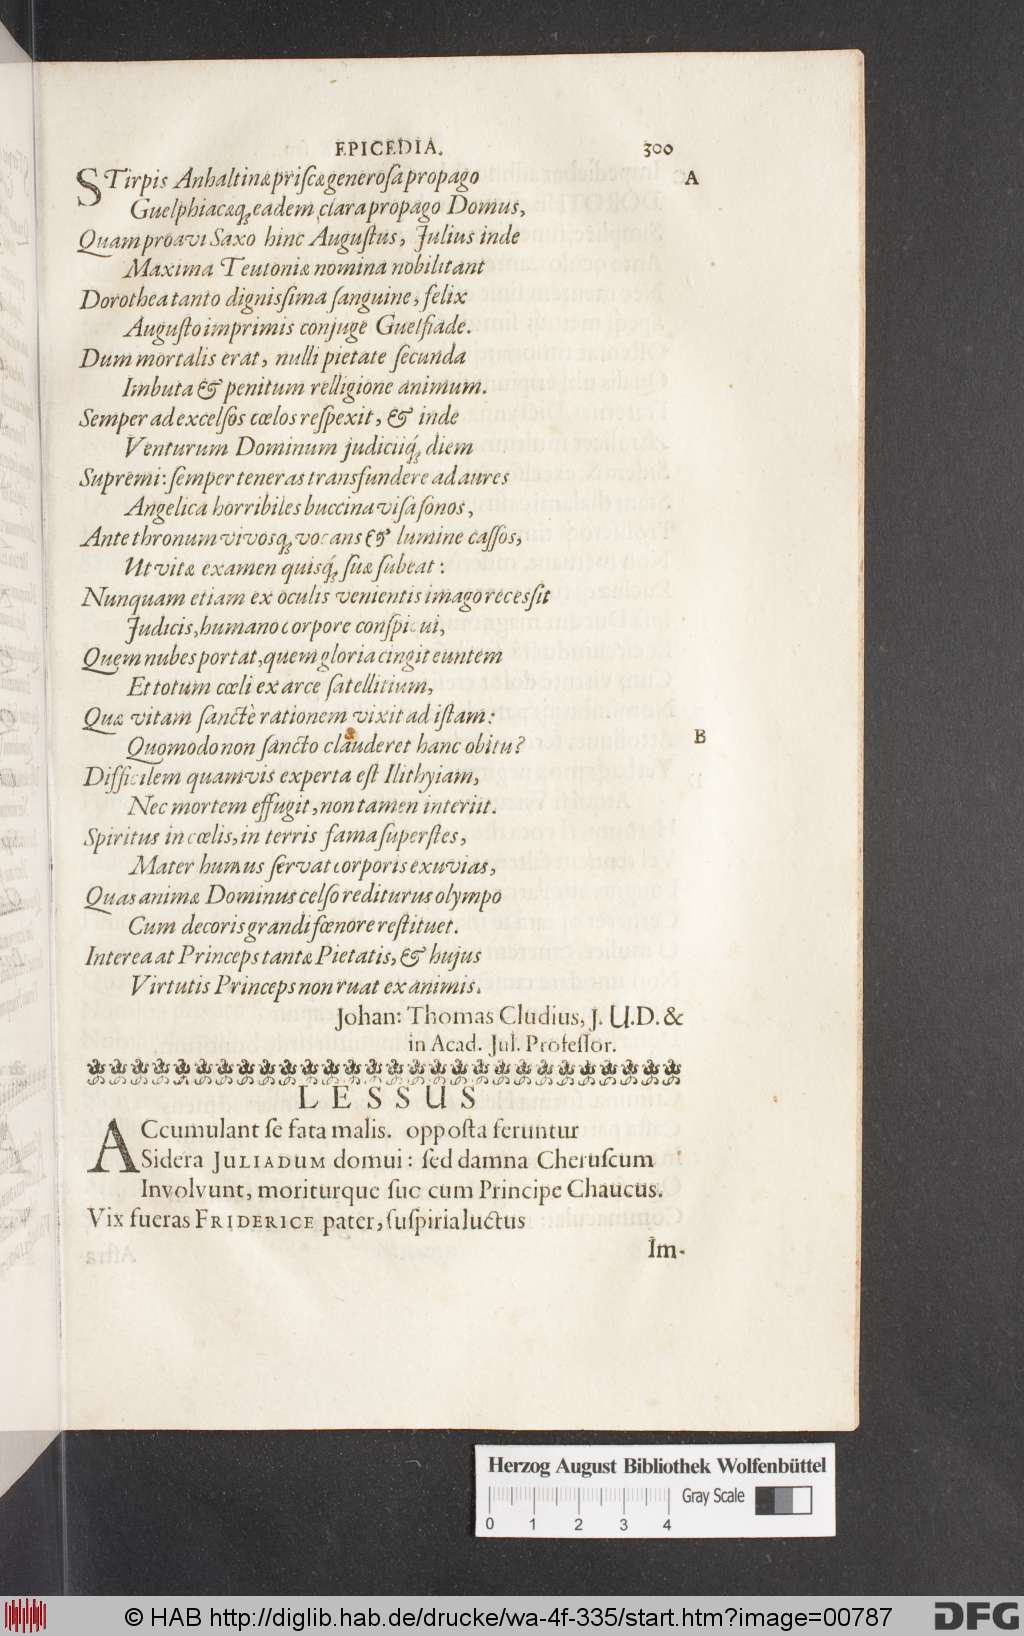 EPICEDIA. 300
STirpis Anhaltinæ priſcæ generoſa propago A
Guelphiacæq́; eadem clara propago Domus,
Quam proavi Saxo hinc Auguſtus, Julius inde
Maxima Teutoniæ nomina nobilitant
Dorothea tanto digniſſima ſanguine, felix
Auguſto imprimis conjuge Guelfiade.
Dum mortalis erat, nulli pietate ſecunda
Imbuta & penitum relligione animum.
Semper ad excelſos cœlos reſpexit, & inde
Venturum Dominum judiciiq́; diem
Supremi: ſemper teneras transfundere ad aures
Angelica horribiles buccina viſa ſonos,
Ante thronum vivosq; vocans & lumine caſſos,
Ut vitæ examen quisq́; ſuæ ſubeat:
Nunquam etiam ex oculis venientis imago receſſit
Judicis, humano corpore conſpicui,
Quem nubes portat, quem gloria cingit euntem
Et totum cœli ex arce ſatellitium,
Quæ vitam ſanctè rationem vixit ad iſtam:
Quomodo non ſancto clauderet hanc obitu? B
Difficilem quamvis experta eſt Ilithyiam,
Nec mortem effugit, non tamen interiit.
Spiritus in cœlis, in terris fama ſuperſtes,
Mater humus ſervat corporis exuvias,
Quas animæ Dominus celſo rediturus olympo
Cum decoris grandi fœnore reſtituet.
Interea at Princeps tantæ Pietatis, & hujus
Virtutis Princeps non ruat ex animis.
Johan: Thomas Cludius, J. U.D. &
in Acad. Jul. Profeſſor.
LESSUS
ACcumulant ſe fata malis. oppoſta feruntur
Sidera JULIADUM domui: ſed damna Cheruſcum
Involvunt, moriturque ſuo cum Principe Chaucus.
Vix fueras FRIDERICE pater, ſuſpiria luctus
Im-
Herzog August Bibliothek Wolfenbüttel
Gray Scale
0 1 2 3 4
© HAB http://diglib.hab.de/drucke/wa-4f-335/start.htm?image=00787 DFG